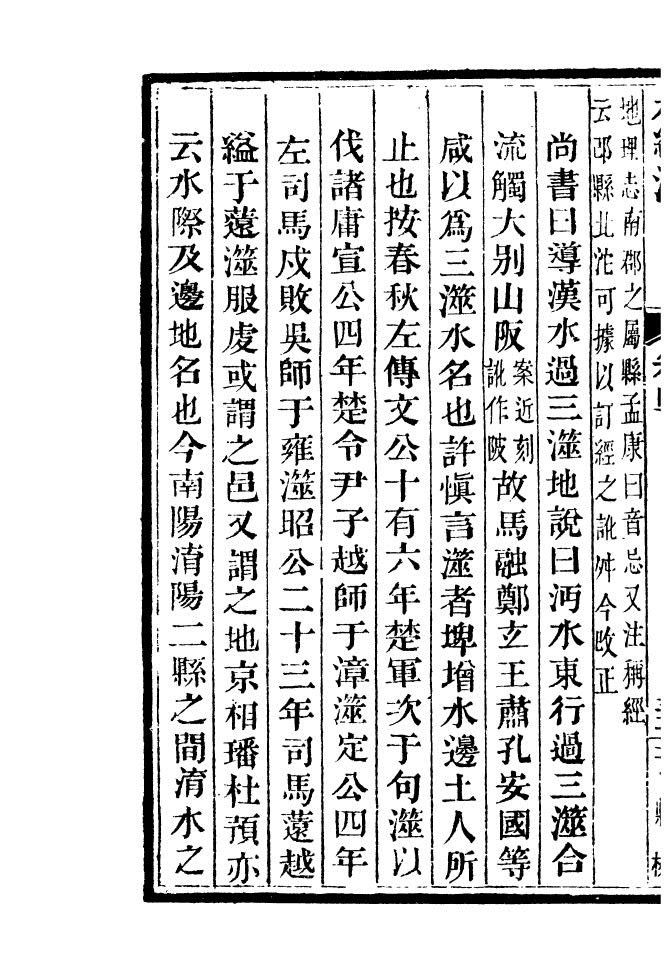 地理志南郡之屬縣孟康曰音忌又注稱經
云邔縣北沱可據以訂經之訛舛今改正
尚書曰導漢水過三澨地說曰沔水東行過三澨合
流觸大别山阪案近刻訛作陂故馬融鄭玄王肅孔安國等
咸以爲三澨水名也許愼言澨者埤增水邊土人所
止也按春秋左傳文公十有六年楚軍次于句澨以
伐諸庸宣公四年楚令尹子越師于漳澨定公四年
左司馬戍敗吳師于雍澨昭公二十三年司馬薳越
縊于薳澨服虔或謂之邑又謂之地京相璠杜預亦
云水際及邊地名也今南陽淯陽二縣之間淯水之